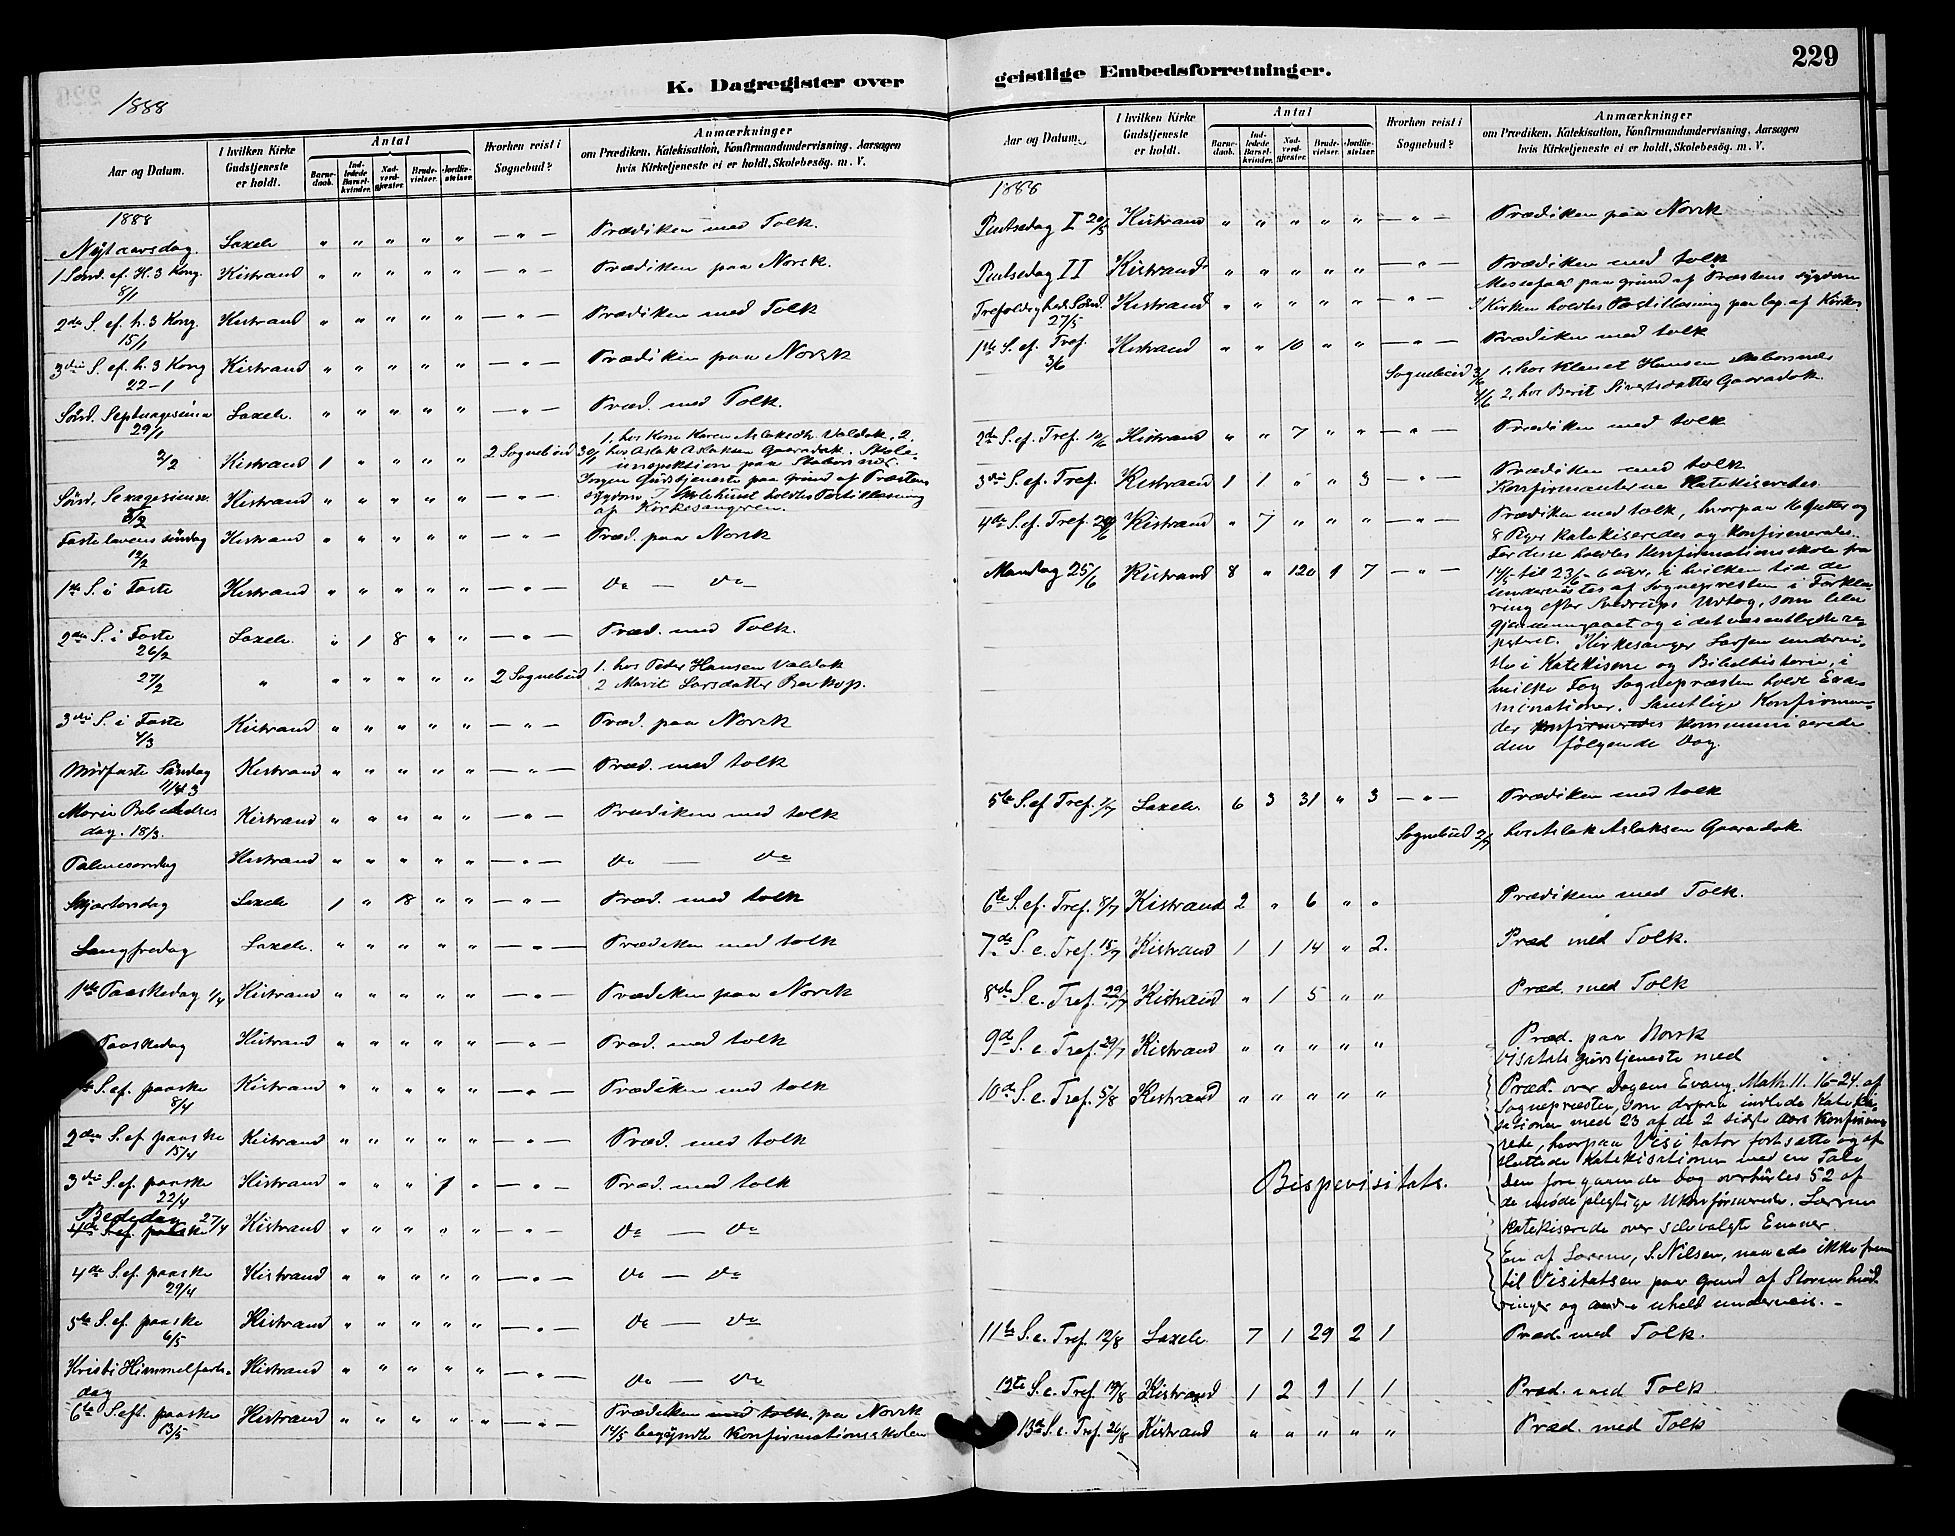 K. Dagregister over
1888
Aar og Datum. I hvilken Kirke Gudstjeneste er holdt. Antal Barnedaab. Indledede Barselkvinder. Nadverdgjæster. Brudevielser. Jordfæstelser. Hvorhen reist i Sognebud? Anmærkninger om Prædiken, Katekisation, Konfirmandundervisning, Aarsagen hvis Kirketjeneste ei er holdt, Skolebesøg. m. V.
1888
Nytaarsdag. Laxelv " " " " " — " — Prædiken med Tolk.
1 Sønd. ef. H. 3 Kong. 8/1 Kistrand " " " " " — " — Prædiken paa Norsk.
2de S. ef. h. 3 Kong. 15/1 Kistrand " " " " " — " — Prædiken med Tolk
3die S. ef. h. 3 Kong 22-1 Kistrand " " " " " — " — Prædiken paa Norsk
Sønd. Septuagesima 29/1 Laxelv. " " " " " — " — Præd. med Tolk.
2/2 Kistrand 1 " " " " 2 Sognebud 30/1 1, hos Kone Karen Aslaksdtr. Valdak, 2.
hos Aslak Aslaksen Gaaradak. Skole-
inspektion paa
Sønd. Sexagesima. 5/2 Kistrand " " " " " — " — Ingen Gudstjeneste paa Grund af Præstens
sygdom I Skolehuset holdtes Postillæsning
af Kirkesangeren.
Fastelavens søndag 12/2 Kistrand " " " " " — " — Præd. paa Norsk
1ste S. i Faste Kistrand " " " " " — " — Do — Do
2den S. i Faste 26/2 Laxelv. " 1 8 " " — " — Præd. med Tolk.
27/2 " " " " " " 2 Sognebud 1. hos Peder Hansen Valdak
2 Marit Larsdatter
3die S. i Faste 4/3 Kistrand " " " " " — " — Præd. paa Norsk
Midfaste Søndag Kistrand " " " " " — " — Præd. med tolk
Mariæ Bebudelses dag. 18/3. Kistrand " " " " " — " — Prædiken med tolk
Palmesøndag Kistrand " " " " " — " — Do — Do
Skjærtorsdag Laxelv 1 " 18 " " — " — Præd. med tolk
Langfredag Laxelv. " " " " " — " — Prædiken med tolk
1ste Paaskedag 1/4 Kistrand " " " " " — " — Prædiken paa Norsk
Paaskedag Kistrand " " " " " — " — Præd. med tolk
S. ef. paaske 8/4 Kistrand " " " " " — " — Prædiken med tolk
2den S. ef paaske 15/4 Kistrand " " " " " — " — Præd. med tolk
3die S. ef. paaske 22/4 Kistrand " " " 1 " — " — Præd. med tolk
Bededag 27/4
4de S. ef. paaske Kistrand " " " " " — " — Do — Do
4de S. ef. paaske 29/4 Kistrand " " " " " — " — Do — Do
5te S. ef. paaske 6/5 Kistrand " " " " " — " — Do — Do
Kristi Himmelfarts-dag Kistrand " " " " " — " — Do — Do
6te S. eft. paaske 13/5 Kistrand " " " " " — " — Prædiken med tolk. paa Norsk
14/5 begyndte Konfirmationsskolen
geistlige Embedsforretninger.
229
Aar og Datum. I hvilken Kirke Gudstjeneste er holdt. Antal Barnedaab. Indledede Barselkvinder. Nadverdgjæster. Brudevielser. Jordfæstelser. Hvorhen reist i Sognebud? Anmærkninger om Prædiken, Katekisation, Konfirmandundervisning, Aarsagen hvis Kirketjeneste ei er holdt, Skolebesøg. m. V.
1888
Pintsedag I 20/5 Kistrand " " " " " — " — Prædiken paa Norsk
Pintsedag II Kistrand " " " " " — " — Prædiken med tolk
Trefoldigheds Sønd. 27/5 Kistrand " " " " " — " — Messefald paa grund af Præstens sygdom
I Kirken holdtes Postillæsning
1ste S. ef. Tref. 3/6 Kistrand " " 10 " " — " — Prædiken med tolk
Sognebud 3/6 1, hos Klemet Hansen
4/6 2, hos Berit Sivertsdatter Gaaradak.
2den S. ef. Tref. 10/6 Kistrand " " 7 " " — " — Prædiken med tolk
3die S. ef. Tref. Kistrand 1 1 " " 3 — " — Prædiken med tolk
Konfirmanterne Katekiseredes.
4de S. ef. Tref. 24/6 Kistrand " 7 " " " — " — Prædiken med tolk, hvorpaa 10 Gutter og
8 Piger Katekiseredes og konfirmerades.
For disse holdtes Konfirmationsskole fra
Mandag 25/6 Kistrand 8 " 120 1 7 — " — 14/5 til 23/6 - 6 uger, i hvilken tid de
undervistes af Sognepresten i Forkla-
ring efter Sverdrups Udtog, som blev
gjennemgaaet og i det væsentligste re-
peteret. Kirkesanger Larsen undervi-
ste i Katekisme og Bibelhistorie, i
hvilke Fag Sognepræsten holdt Exa-
minationer. Samtlige Konfirman-
der konfirmeredes kommunicerede
den følgende Dag.
5te S. ef Tref. 1/7 Laxelv. 6 3 31 " 3 — " — Prædiken med tolk
Sognebud 2/7 hos Aslak Aslaksen Gaaradak
6te S. ef. Tref. 8/7 Kistrand 2 " 6 " " Prædiken med Tolk.
7de S. e. Tref. 15/7 Kistrand 1 1 14 " 2. Præd med Tolk.
8de S. e. Tref. 22/7 Kistrand " 1 5 " " Præd. med Tolk
9de S. e. Tref. 29/7 Kistrand " " " " " Præd. paa Norsk
10de S. e. Tref. 5/8 Kistrand " " " " " Visitats gudstjeneste med
Præd. over Dagens Evang. Math. 11. 16-24. af
Sognepræsten, som derpaa indlede Kateki-
sationen med 23 af de 2 sidste aars Konfirme-
rede, hvorpaa Visitator fortsatte og af-
sluttede Katekisationen med en Tale
Bispevisitats. Den foregaaende Dag overhørtes 52 af
de mødepligtige Ukonfirmerede. Lærerne
katekiserede over selvvalgte Emner.
En af Lærerne, S. Nilsen, naaede ikke frem
til Visitatsen paa Grund af Storm hind-
ringer og andre uheld underveis. -
11te S. e. Tref. 12/8 Laxelv 7 1 29 2 1 Præd. med Tolk.
12te S. e. Tref. 19/8 Kistrand 1 2 9 1 1 Præd. med Tolk.
13de S. e. Tref. 26/8 Kistrand " " " " " Præd. med Tolk